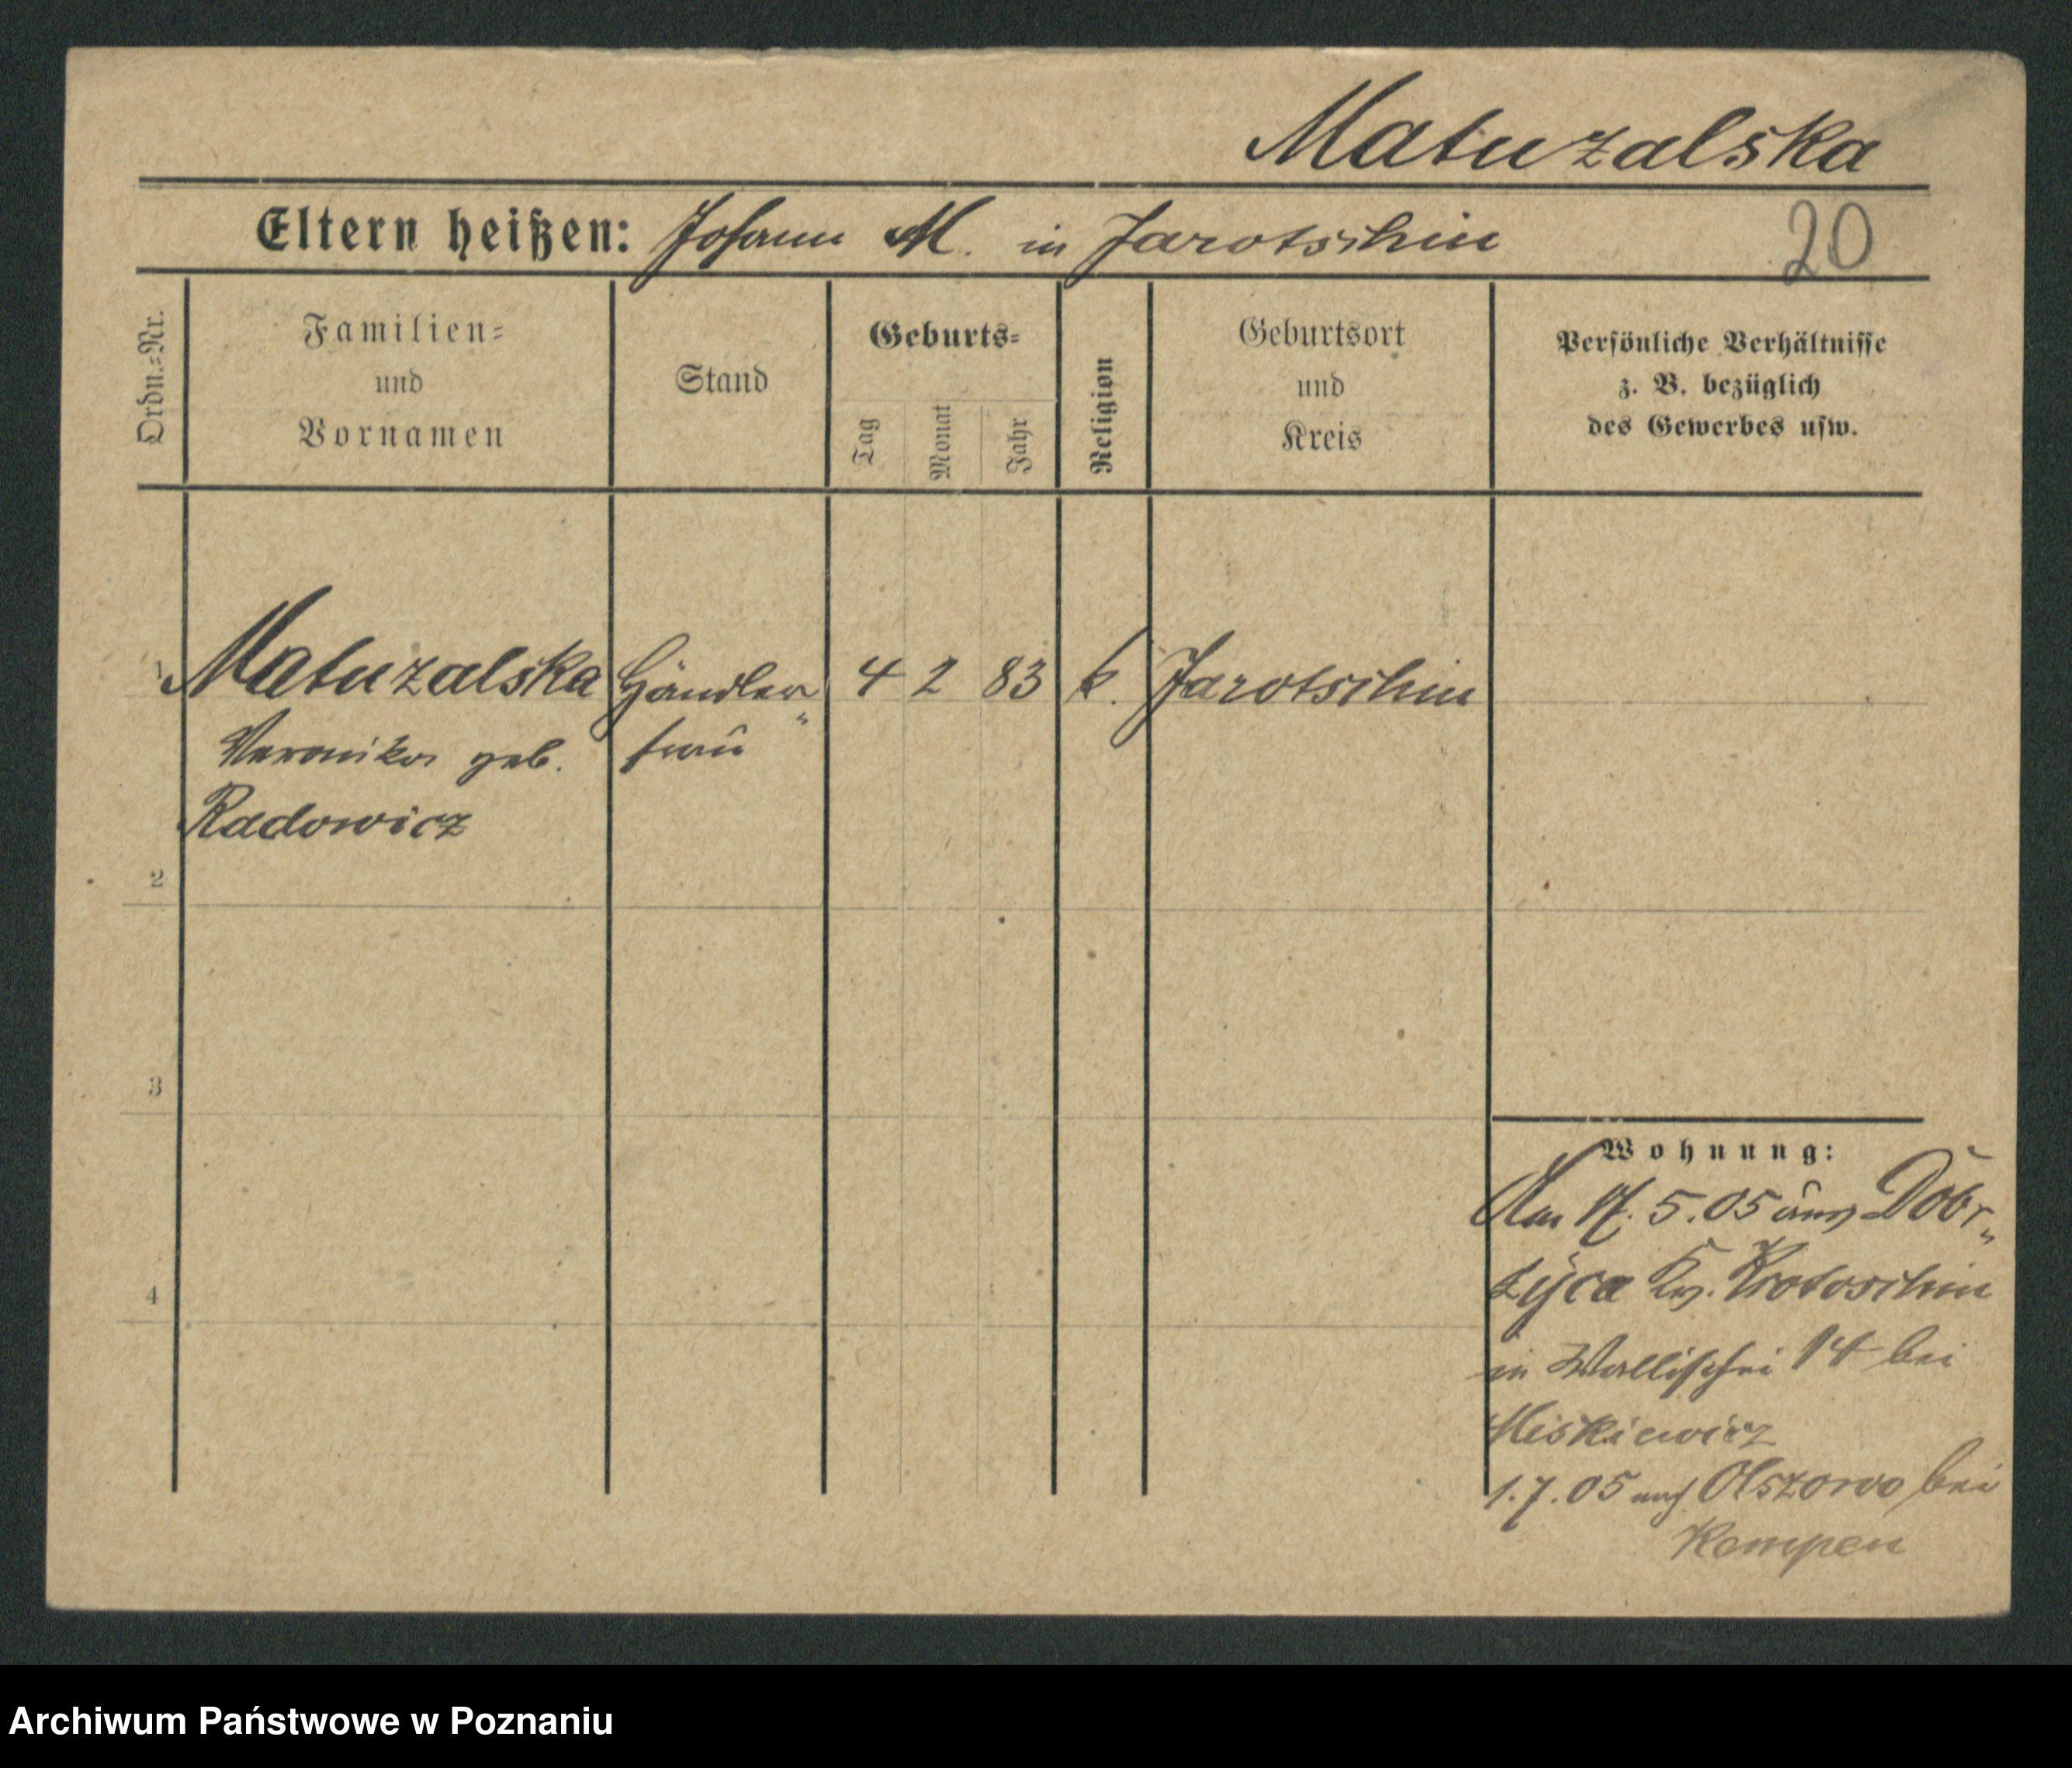 Matuzalska
Eltern heißen: Johann M. in Jarotschin
20
Ordn.=Nr.
Familien=
und
Vornamen
Stand
Geburts=
Tag
Monat
Jahr
Religion
Geburtsort
und
Kreis
Persönliche Verhältnisse
z. B. bezüglich
des Gewerbes usw.
1 Matuzalska Händler„ 4 2 83 k. Jarotschin
Veronika geb. frau
Radowicz
2
3
4
Wohnung:
Am 5.05 aus Dobr„
zyca Kr. Krotoschin
in Wallischei 14 bei
Miskiewicz
1.7.05 nach Olszowo bei
Kempen
Archiwum Państwowe w Poznaniu